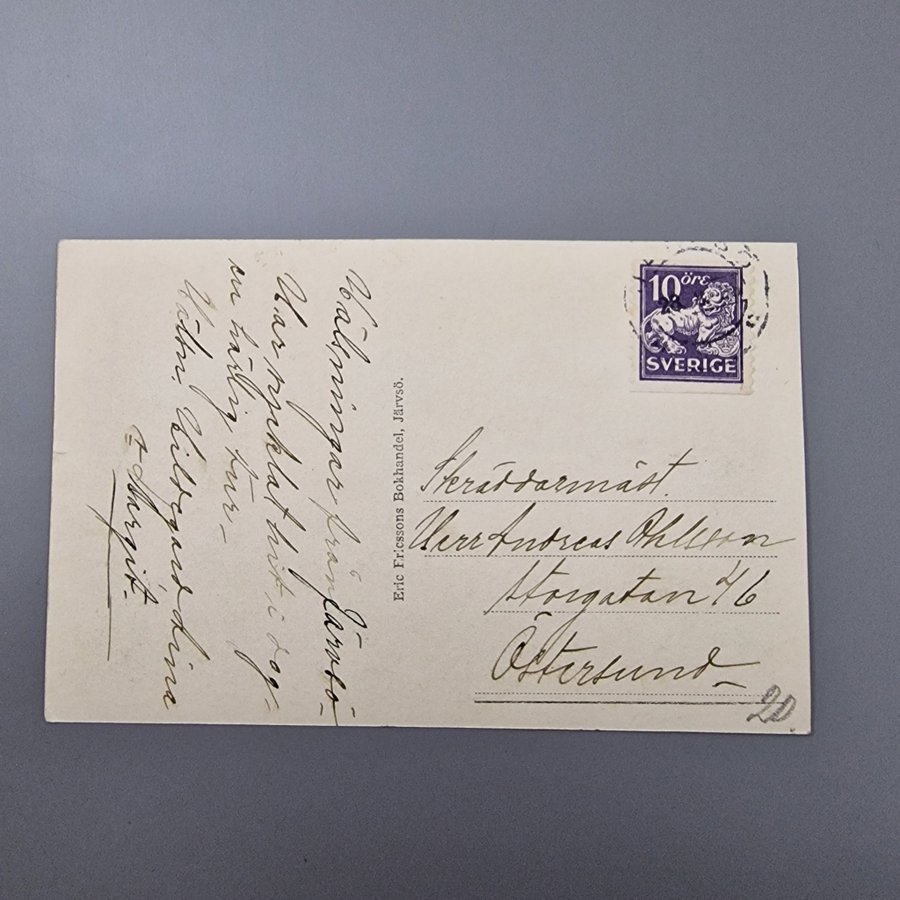 Hälsningar från Järvsö
Har cyklat hit i dag
en härlig tur –
Hälsn. Hildegard Lina
Margit.
Eric Ericssons Bokhandel, Järvsö.
10 öre
SVERIGE
Skräddarmäst.
Herr Andreas Ohlsson
Storgatan 46
Östersund
20